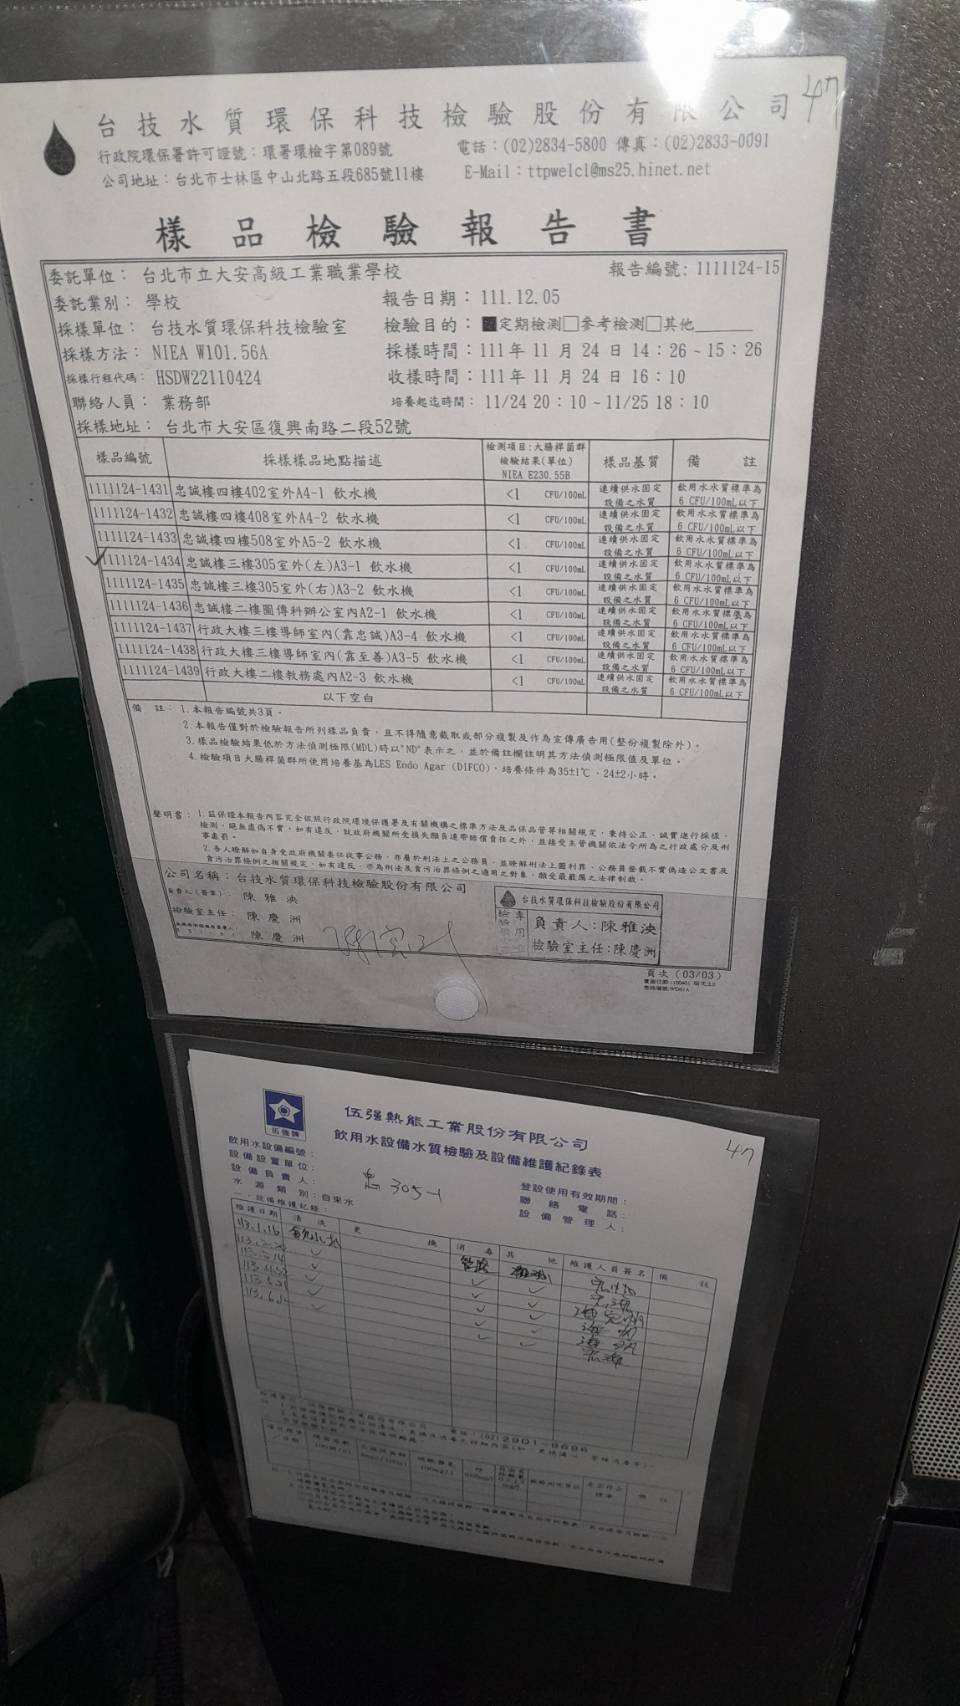 47
台技水質環保科技檢驗股份有限公司
行政院環保署許可證號：環署環檢字第089號
電話：(02)2834-5800 傳真：(02)2833-0091
公司地址：台北市士林區中山北路五段685號11樓
E-Mail：ttpwelcl@ms25.hinet.net
樣品檢驗報告書
委託單位：台北市立大安高級工業職業學校
報告編號：1111124-15
委託業別：學校
報告日期：111.12.05
採樣單位：台技水質環保科技檢驗室
檢驗目的：■定期檢測□參考檢測□其他
採樣方法：NIEA W101.56A
採樣時間：111年11月24日14：26~15：26
採樣行程代碼：HSDW22110424
收樣時間：111年11月24日16：10
聯絡人員：業務部
培養起迄時間：11/24 20：10~11/25 18：10
採樣地址：台北市大安區復興南路二段52號
樣品編號 採樣樣品地點描述 檢測項目:大腸桿菌群 檢驗結果(單位) NIEA E230.55B 樣品基質 備註
1111124-1431 忠誠樓四樓402室外A4-1 飲水機 <1 CFU/100mL 連續供水固定設備之水質 飲用水水質標準為6 CFU/100mL以下
1111124-1432 忠誠樓四樓408室外A4-2 飲水機 <1 CFU/100mL 連續供水固定設備之水質 飲用水水質標準為6 CFU/100mL以下
1111124-1433 忠誠樓四樓508室外A5-2 飲水機 <1 CFU/100mL 連續供水固定設備之水質 飲用水水質標準為6 CFU/100mL以下
✓1111124-1434 忠誠樓三樓305室外(左)A3-1 飲水機 <1 CFU/100mL 連續供水固定設備之水質 飲用水水質標準為6 CFU/100mL以下
1111124-1435 忠誠樓三樓305室外(右)A3-2 飲水機 <1 CFU/100mL 連續供水固定設備之水質 飲用水水質標準為6 CFU/100mL以下
1111124-1436 忠誠樓二樓圖傳科辦公室內A2-1 飲水機 <1 CFU/100mL 連續供水固定設備之水質 飲用水水質標準為6 CFU/100mL以下
1111124-1437 行政大樓三樓導師室內(靠忠誠)A3-4 飲水機 <1 CFU/100mL 連續供水固定設備之水質 飲用水水質標準為6 CFU/100mL以下
1111124-1438 行政大樓三樓導師室內(靠至善)A3-5 飲水機 <1 CFU/100mL 連續供水固定設備之水質 飲用水水質標準為6 CFU/100mL以下
1111124-1439 行政大樓二樓教務處內A2-3 飲水機 <1 CFU/100mL 連續供水固定設備之水質 飲用水水質標準為6 CFU/100mL以下
以下空白
備註：1.本報告編號共3頁。
2.本報告僅對於檢驗報告所列樣品負責，且不得隨意截取或部分複製及作為宣傳廣告用(整份複製除外)。
3.樣品檢驗結果低於方法偵測極限(MDL)時以"ND"表示之，並於備註欄註明其方法偵測極限值及單位。
4.檢驗項目大腸桿菌群所使用培養基為LES Endo Agar (DIFCO)，培養條件為35±1℃，24±2小時。
聲明書：1.茲保證本報告內容完全依照行政院環境保護署及有關機構之標準方法及品保品管等相關規定，秉持公正、誠實進行採樣、
檢測，絕無虛偽不實，如有違反，就政府機關所受損失願負連帶賠償責任之外，並接受主管機關依法令所為之行政處分及刑
事處罰。
2.各人瞭解如自身受政府機關委任從事公務，亦屬於刑法上之公務員，並瞭解刑法上圖利罪、公務員登載不實偽造公文書及
貪污治罪條例之相關規定，如有違反，亦為刑法及貪污治罪條例之適用之對象，願受最嚴厲之法律制裁。
公司名稱：台技水質環保科技檢驗股份有限公司
負責人(簽章)：陳雅泱
檢驗室主任：陳慶洲
陳慶洲
台技水質環保科技檢驗股份有限公司
負責人:陳雅泱
檢驗室主任:陳慶洲
頁次 (03/03)
47
伍強牌
伍強熱能工業股份有限公司
飲用水設備水質檢驗及設備維護紀錄表
飲用水設備編號：
設備設置單位：
設備負責人：
忠 305-1
水源類別：自來水
登設使用有效期間：
聯絡電話：
設備管理人：
一、設備維護記錄：
維護日期 清洗 更換 消毒 其他 維護人員簽名 備註
113.1.16
(02)2901-9696